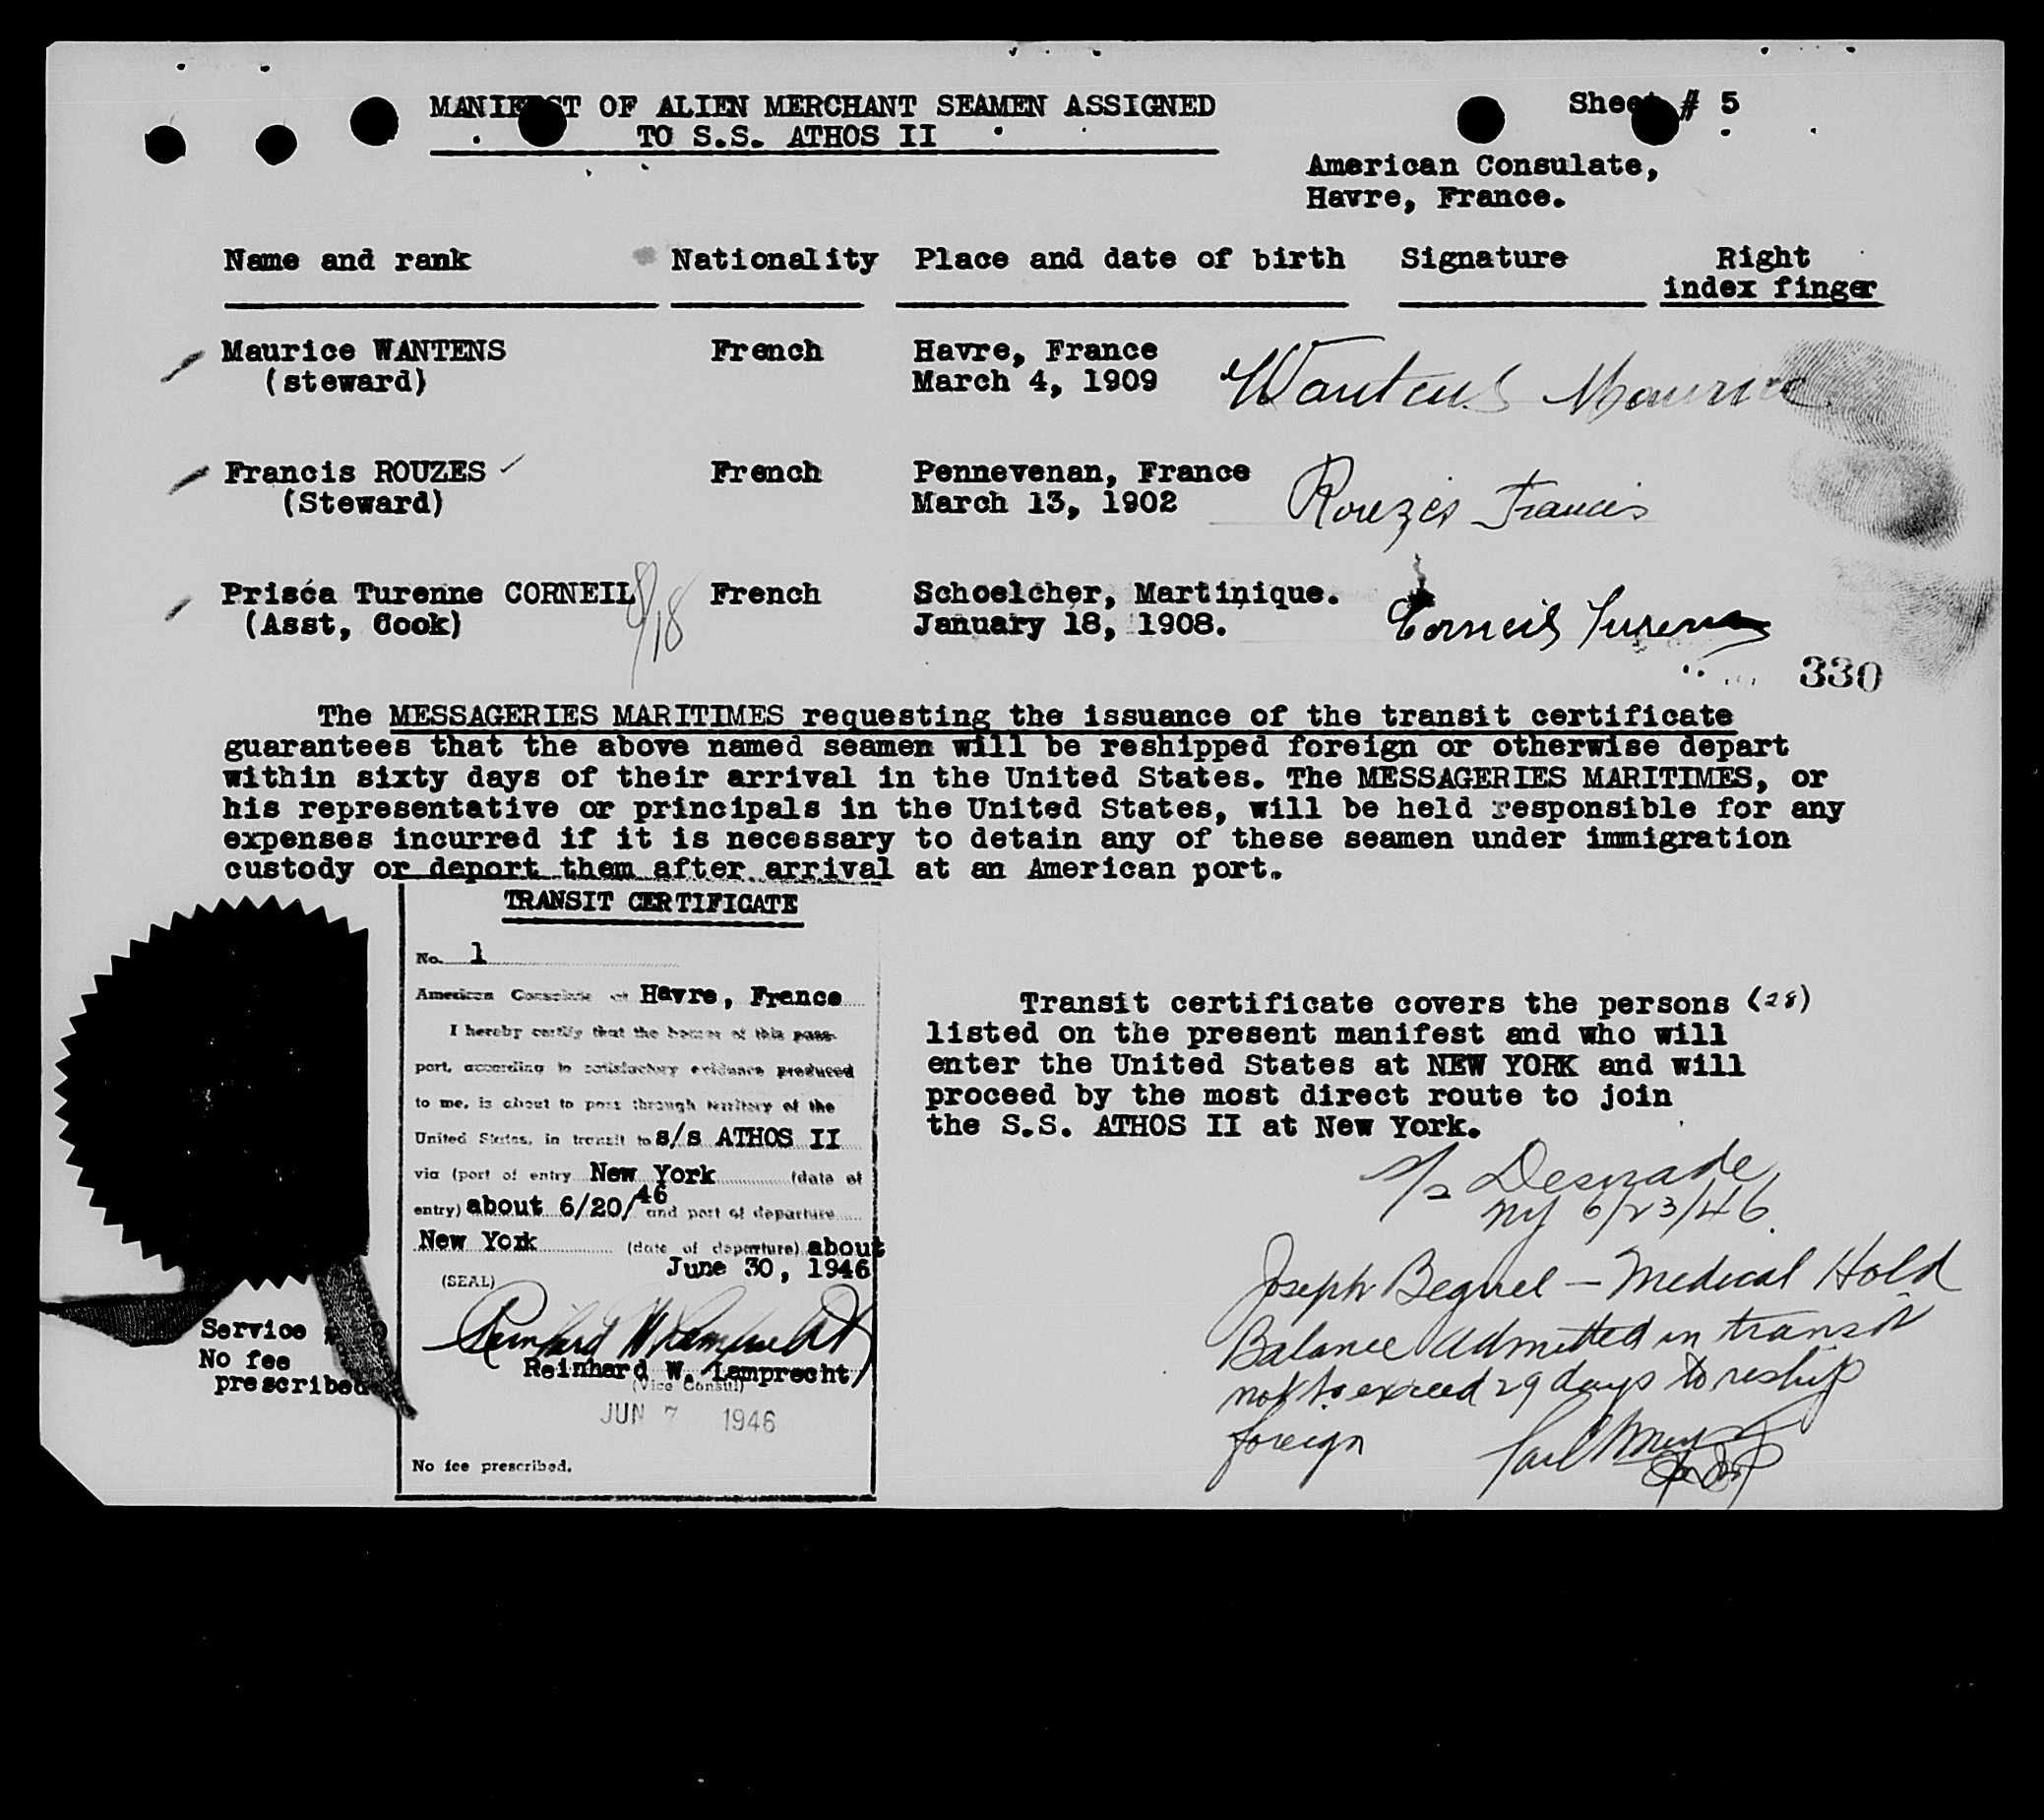 MANIFEST OF ALIEN MERCHANT SEAMEN ASSIGNED
TO S.S. ATHOS II
Sheet # 5
American Consulate,
Havre, France.
Name and rank Nationality Place and date of birth Signature Right
index finger
Maurice WANTENS French Havre, France
(steward) March 4, 1909
Wantens Maurice
Francis ROUZES French Pennevenan, France
(Steward) March 13, 1902
Rouzes Francis
Prisca Turenne CORNEIL 8/18 French Schoelcher, Martinique.
(Asst, Cook) January 18, 1908.
Corneil Turenne
330
The MESSAGERIES MARITIMES requesting the issuance of the transit certificate
guarantees that the above named seamen will be reshipped foreign or otherwise depart
within sixty days of their arrival in the United States. The MESSAGERIES MARITIMES, or
his representative or principals in the United States, will be held responsible for any
expenses incurred if it is necessary to detain any of these seamen under immigration
custody or deport them after arrival at an American port.
TRANSIT CERTIFICATE
No. 1
American Consulate at Havre, France
I hereby certify that the bearer of this pass-
port, according to satisfactory evidence produced
to me, is about to pass through territory of the
United States, in transit to s/s ATHOS II
via (port of entry New York (date of
entry) about 6/20/46 and port of departure
New York (date of departure) about
June 30, 1946
(SEAL)
Reinhard W. Lamprecht
Reinhard W. Lamprecht
(Vice Consul)
JUN 7 1946
No fee prescribed.
Service #
No fee
prescribed
Transit certificate covers the persons (28)
listed on the present manifest and who will
enter the United States at NEW YORK and will
proceed by the most direct route to join
the S.S. ATHOS II at New York.
S/S Desirade
NY 6/23/46
Joseph Beguel — Medical Hold
Balance Admitted in transit
not to exceed 29 days to reship
foreign